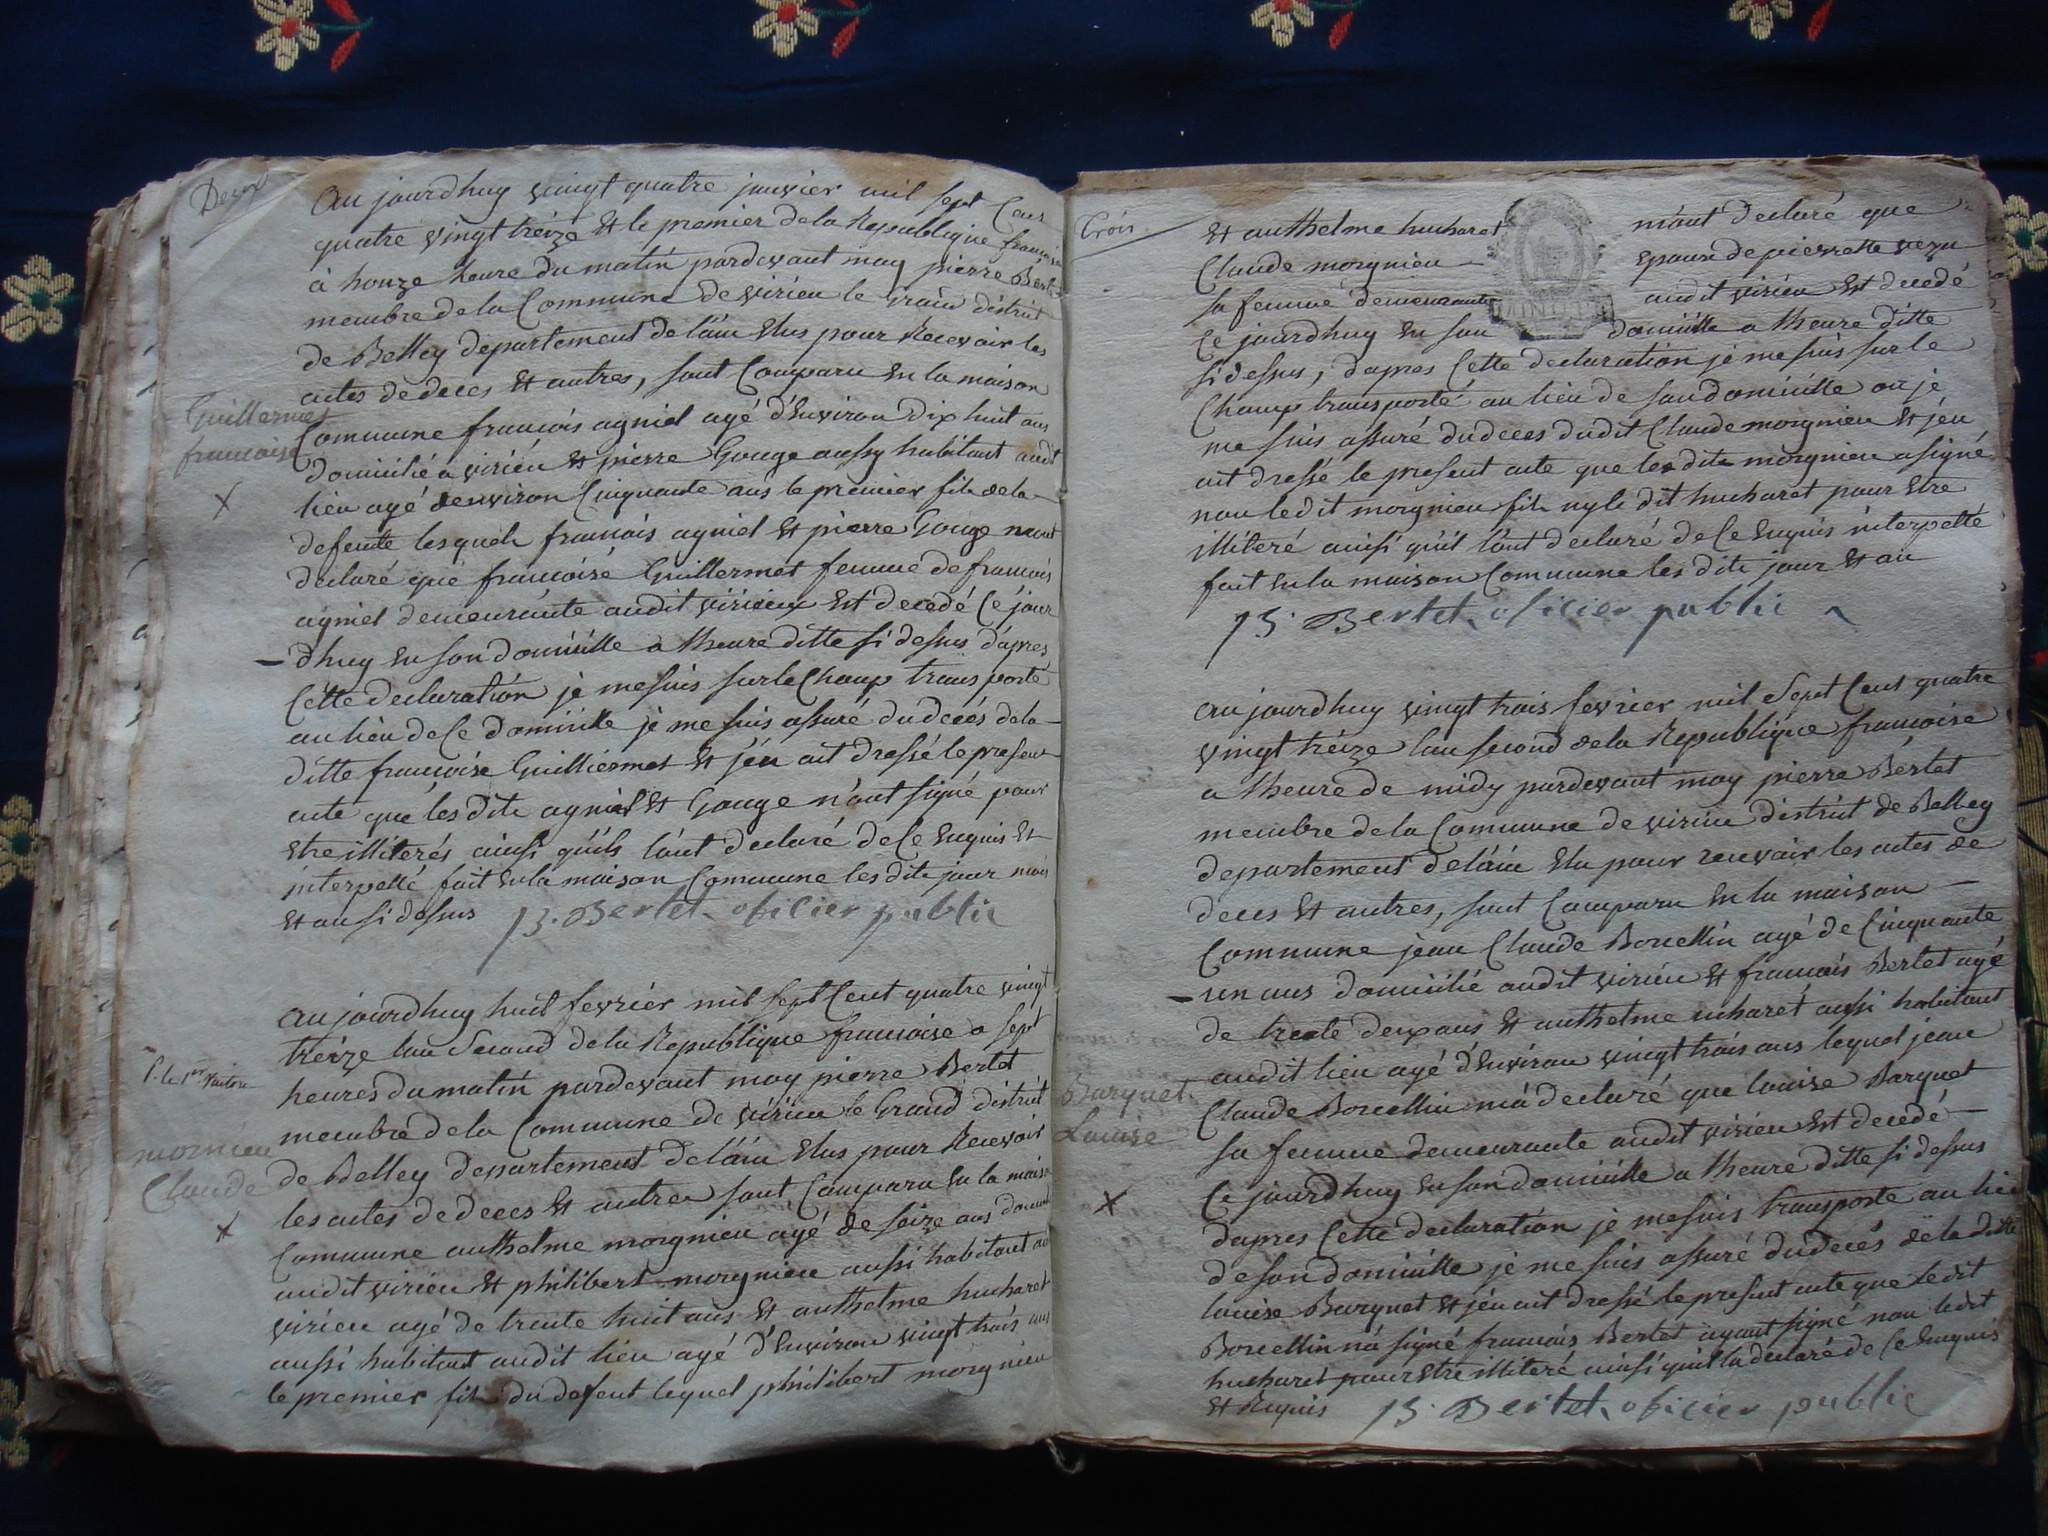 Deux
Au jourdhuy vingt quatre janvier mil sept Cens
quatre vingt treize Et le premier de la Republique françoise
à honze heure du matin pardevant moy pierre Bertet
membre de la Commune de virieu le Grand district
de Belley departement de lain Elus pour Recevoir les
actes de deces Et autres, sont Comparu En la maison
Commune francois agniel agé d'Environ Dix huit ans
domicilié a virieu Et pierre Gouge aussy habitant audit
lieu agé denviron Cinquante ans le premier fils de la
defeute lesquels francois agniel Et pierre Gouge mont
declaré que francoise Guillermet femme de francois
agniel demeurante audit virieux Est decedé Ce jour
dhuy En son domicille a lheure ditte si desus dapres
Cette declaration je me suis sur le Champ transporté
au lieu de Ce domicille je me suis assuré du deces de la
ditte françoise Guilliermet Et j'en ait dressé le present
acte que les dits agniel Et Gouge n'ont signé pour
Etre illiterés ainsi quils lont declaré de Ce Enquis Et
interpellé fait En la maison Commune les dits jour mois
Et an si desus p. Bertet oficier public
Guillermet
francoise
X
Au jourdhuy huit fevrier mil sept Cent quatre vingt
treize lan Second de la Republique francoise a sept
heures du matin pardevant moy pierre Bertet
membre de la Commune de virieu le Grand district
de Belley departement de lain Elus pour Recevoir
les actes de deces Et autres sont Comparu En la maison
Commune authelme morgnieu agé de seize ans
audit virieu Et philibert morgnieu aussi habitant au
virieu agé de trente huit ans Et authelme hucharet
aussi habitant audit lieu agé d'Environ vingt trois ans
le premier fils du defeut lequel philibert morgnieu
mornieu
Claude
X
Trois
Et authelme hucharet mont declaré que
Claude morgnieu Epoux de pierrette
sa femme demeurante audit virieu Est decedé
Ce jourdhuy En son domicille a lheure ditte
si desus, dapres Cette declaration je me suis sur le
Champ transporté au lieu de son domicille ou je
me suis assuré du deces dudit Claude morgnieu Et jen
ait dressé le present acte que les dits morgnieu a signé
non ledit morgnieu fils ny le dit hucharet pour Etre
illiteré ainsi quil lont declaré de Ce Enquis interpellé
fait En la maison Commune les dits jour Et an
p. Bertet oficier public
au jourdhuy vingt trois fevrier mil Sept Cent quatre
vingt treize lan second de la Republique francoise
a lheure de midy pardevant moy pierre Bertet
membre de la Commune de virieu district de Belley
departement de lain Elu pour recevoir les actes de
deces Et autres, sont Comparu En la maison
Commune jean Claude Borcellin agé de Cinquante
un ans domicilié audit virieu Et francois Bertet agé
de trente deux ans Et authelme ucharet aussi habitant
audit lieu agé d'Environ vingt trois ans lequel jean
Claude Borcellin ma declaré que louise Barquet
sa femme demeurante audit virieu Est decedé
Ce jourdhuy En son domicille a lheure ditte si desus
dapres Cette declaration je me suis transporte au lieu
de son domicille je me suis assuré du deces de la ditte
louise Barquet Et jen ait dressé le present acte que ledit
Borcellin na signé francois Bertet ayant signé non ledit
hucharet pour Etre illiteré ainsi quil la declaré de Ce Enquis
Et Requis p. Bertet oficier public
Barquet
Louise
X